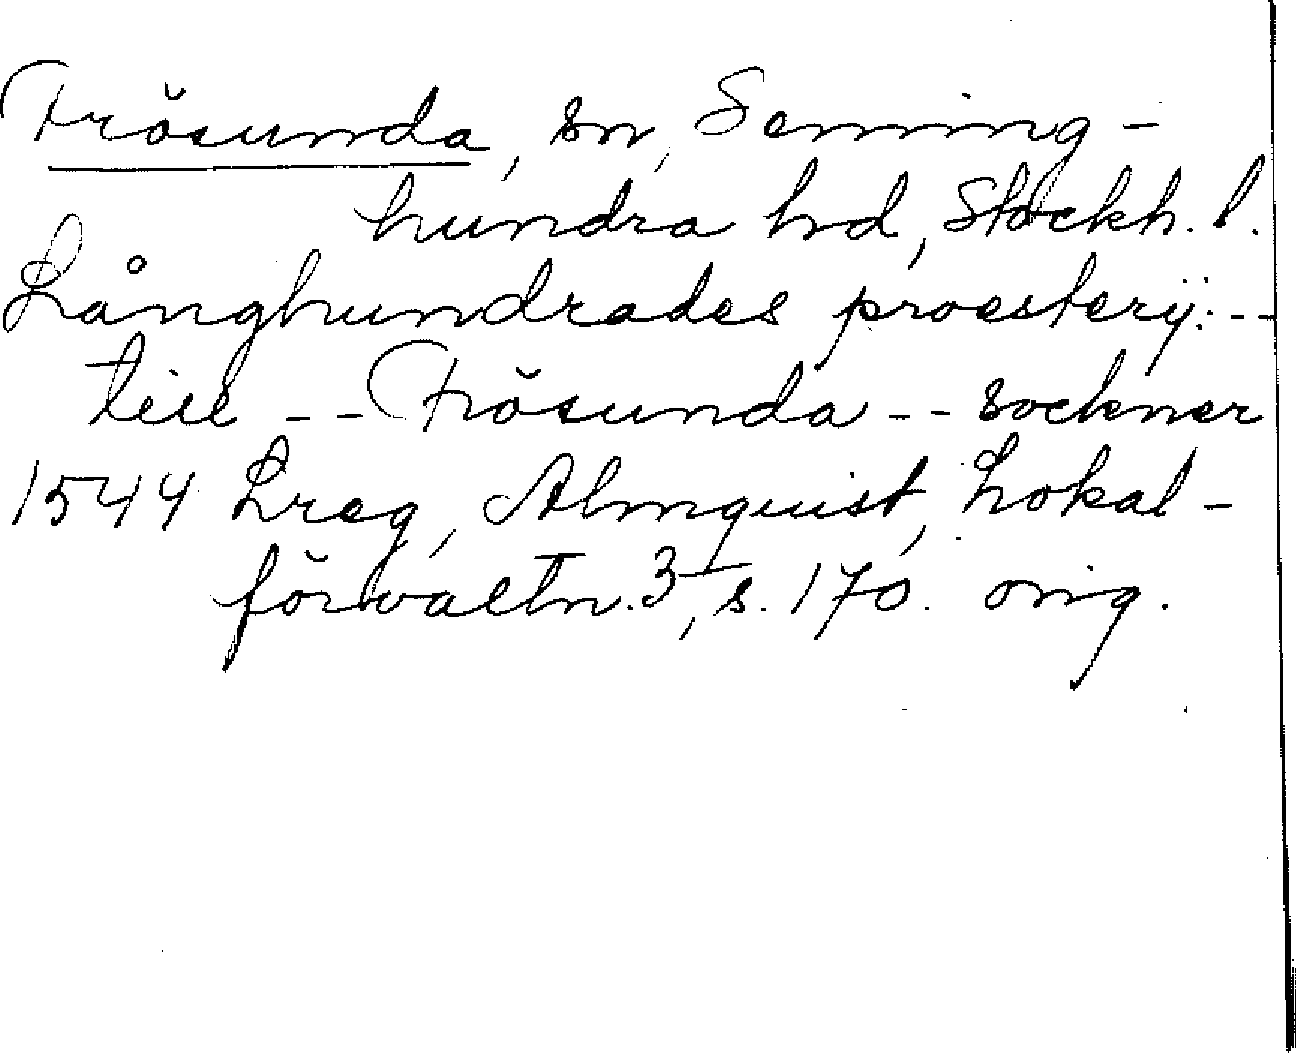 Frösunda, sn, Seming-
hundra hd, Stockh. l.
Långhundrades proesterij: --
till -- Frösunda -- sockner
1544 Lreg, Almquist, Lokal-
förvaltn. 3, s. 170. orig.